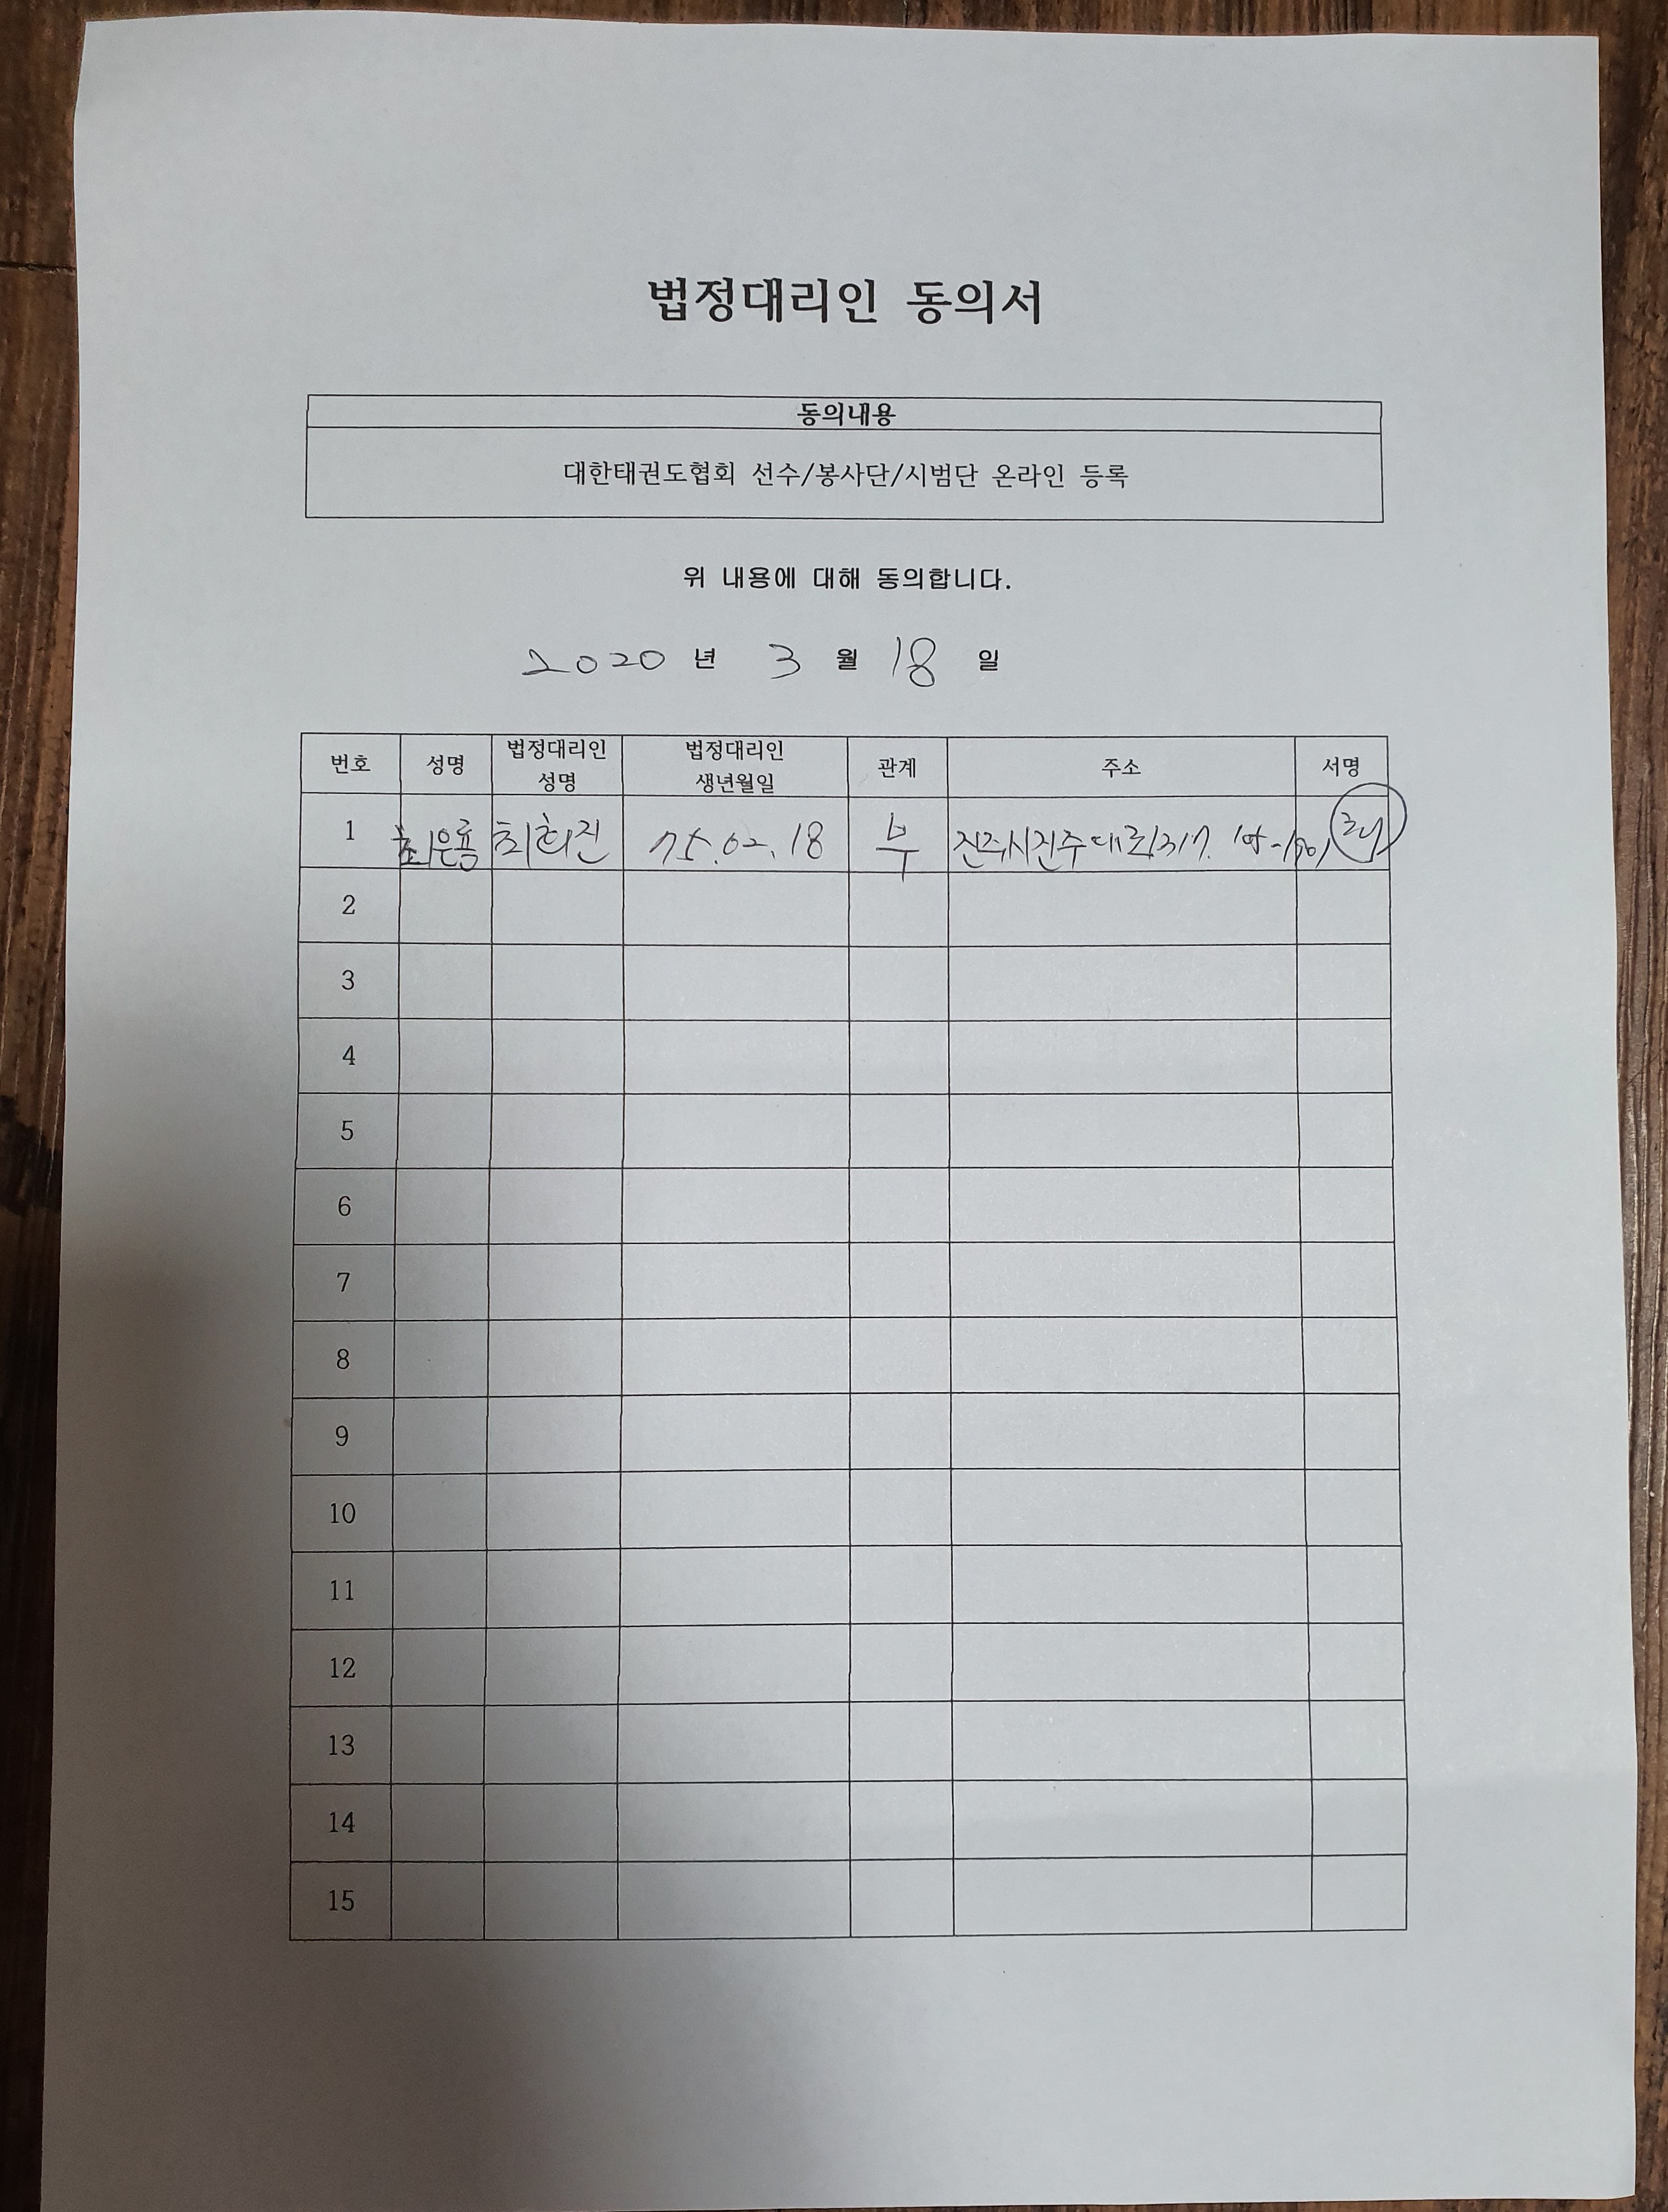 법정대리인 동의서
동의내용
대한태권도협회 선수/봉사단/시범단 온라인 등록
위 내용에 대해 동의합니다.
2020 년 3 월 18 일
번호 성명 법정대리인 성명 법정대리인 생년월일 관계 주소 서명
1 최은용 최희진 75.02.18 부 진주시진주대로1317.
2
3
4
5
6
7
8
9
10
11
12
13
14
15